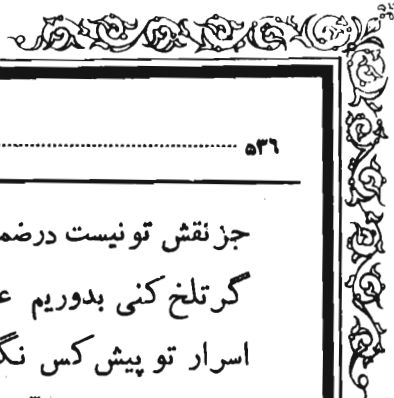 ۵۳۶
جز نقش تو نیست در
گر تلخ کنی بدوریم
اسرار تو پیش کس